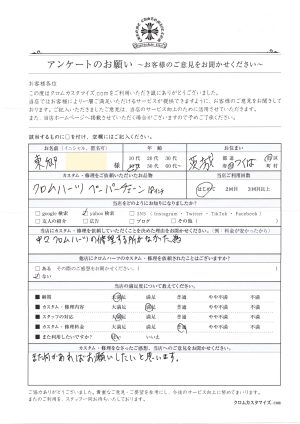 アンケートのお願い ～お客様のご意見をお聞かせください～
お客様各位
この度はクロムカスタマイズ.comをご利用いただき誠にありがとうございました。
当店ではお客様により一層ご満足いただけるサービスが提供できますように、お客様のご意見をお聞きして
おります。ご記入いただきましたご意見は、当店のサービス向上のために活用させていただきます。
また、当店ホームページへ掲載させていただく場合がございますので予めご了承ください。
該当するものに□を付け、空欄にはご記入ください。
お名前（イニシャル、匿名可） 年 齢 お住まい
東郷 様 10代 20代 30代 40代 50代 60代～ 茨城 都道府県 つくば 市区
カスタム・修理をご依頼いただいたお品物 当店ご利用回数
クロムハーツ ペーパーチェーン 18インチ はじめて 2回目 3回目以上
当店をどのようにお知りになりましたか？
□ google 検索 ☑ yahoo 検索 □ SNS（Instagram・Twitter・Tiktok・Facebook）
□ 友人の紹介 □ 広告 □ ブログ □ その他（ ）
当店にカスタム・修理を依頼していただくことを決めた理由をお聞かせください。（例：料金が安かったから）
クロムハーツの修理する所がなかった為
他店にクロムハーツのカスタム・修理を依頼されたことはございますか？
□ ある その際のご感想をお聞かせください。（ ）
☑ ない
当店の満足度について教えてください。
■ 納期 大満足 満足 普通 やや不満 不満
■ カスタム・修理内容 大満足 満足 普通 やや不満 不満
■ スタッフの対応 大満足 満足 普通 やや不満 不満
■ カスタム・修理料金 大満足 満足 普通 やや不満 不満
■ また利用したいですか？ はい いいえ
カスタム・修理をなさったご感想、当店へのご意見をお聞かせください。
また何かあればお願いしたいと思います。
ご協力ありがとうございました。貴重なご意見・ご要望を参考にし、今後のサービス向上に努めてまいります。
またのご利用を、スタッフ一同お待ちいたしております。
クロムカスタマイズ.com